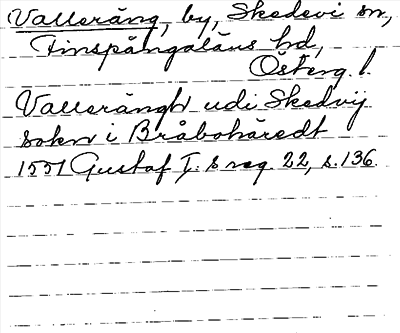 Valleräng, by, Skedevi sn,
Finspångaläns hd,
Österg. l.
Vallerängh udi Skedvij
sokn i Bråboháredt
1551 Gustaf I:s reg. 22, s. 136.